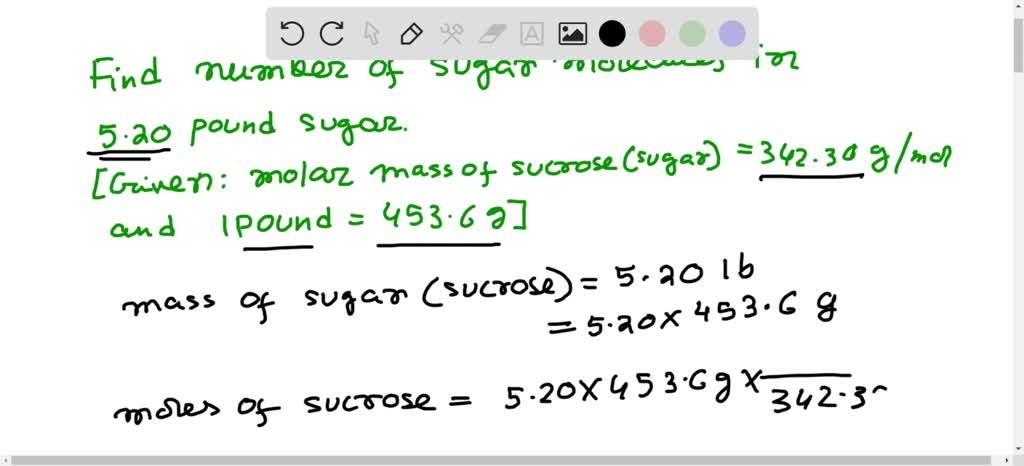 Find number of sugar molecules in
5.20 pound sugar.
[Given: molar mass of sucrose (sugar) = 342.30 g/mol
and 1 pound = 453.6 g]
mass of sugar (sucrose) = 5.20 lb
= 5.20 × 453.6 g
moles of sucrose = 5.20 × 453.6 g × /342.3